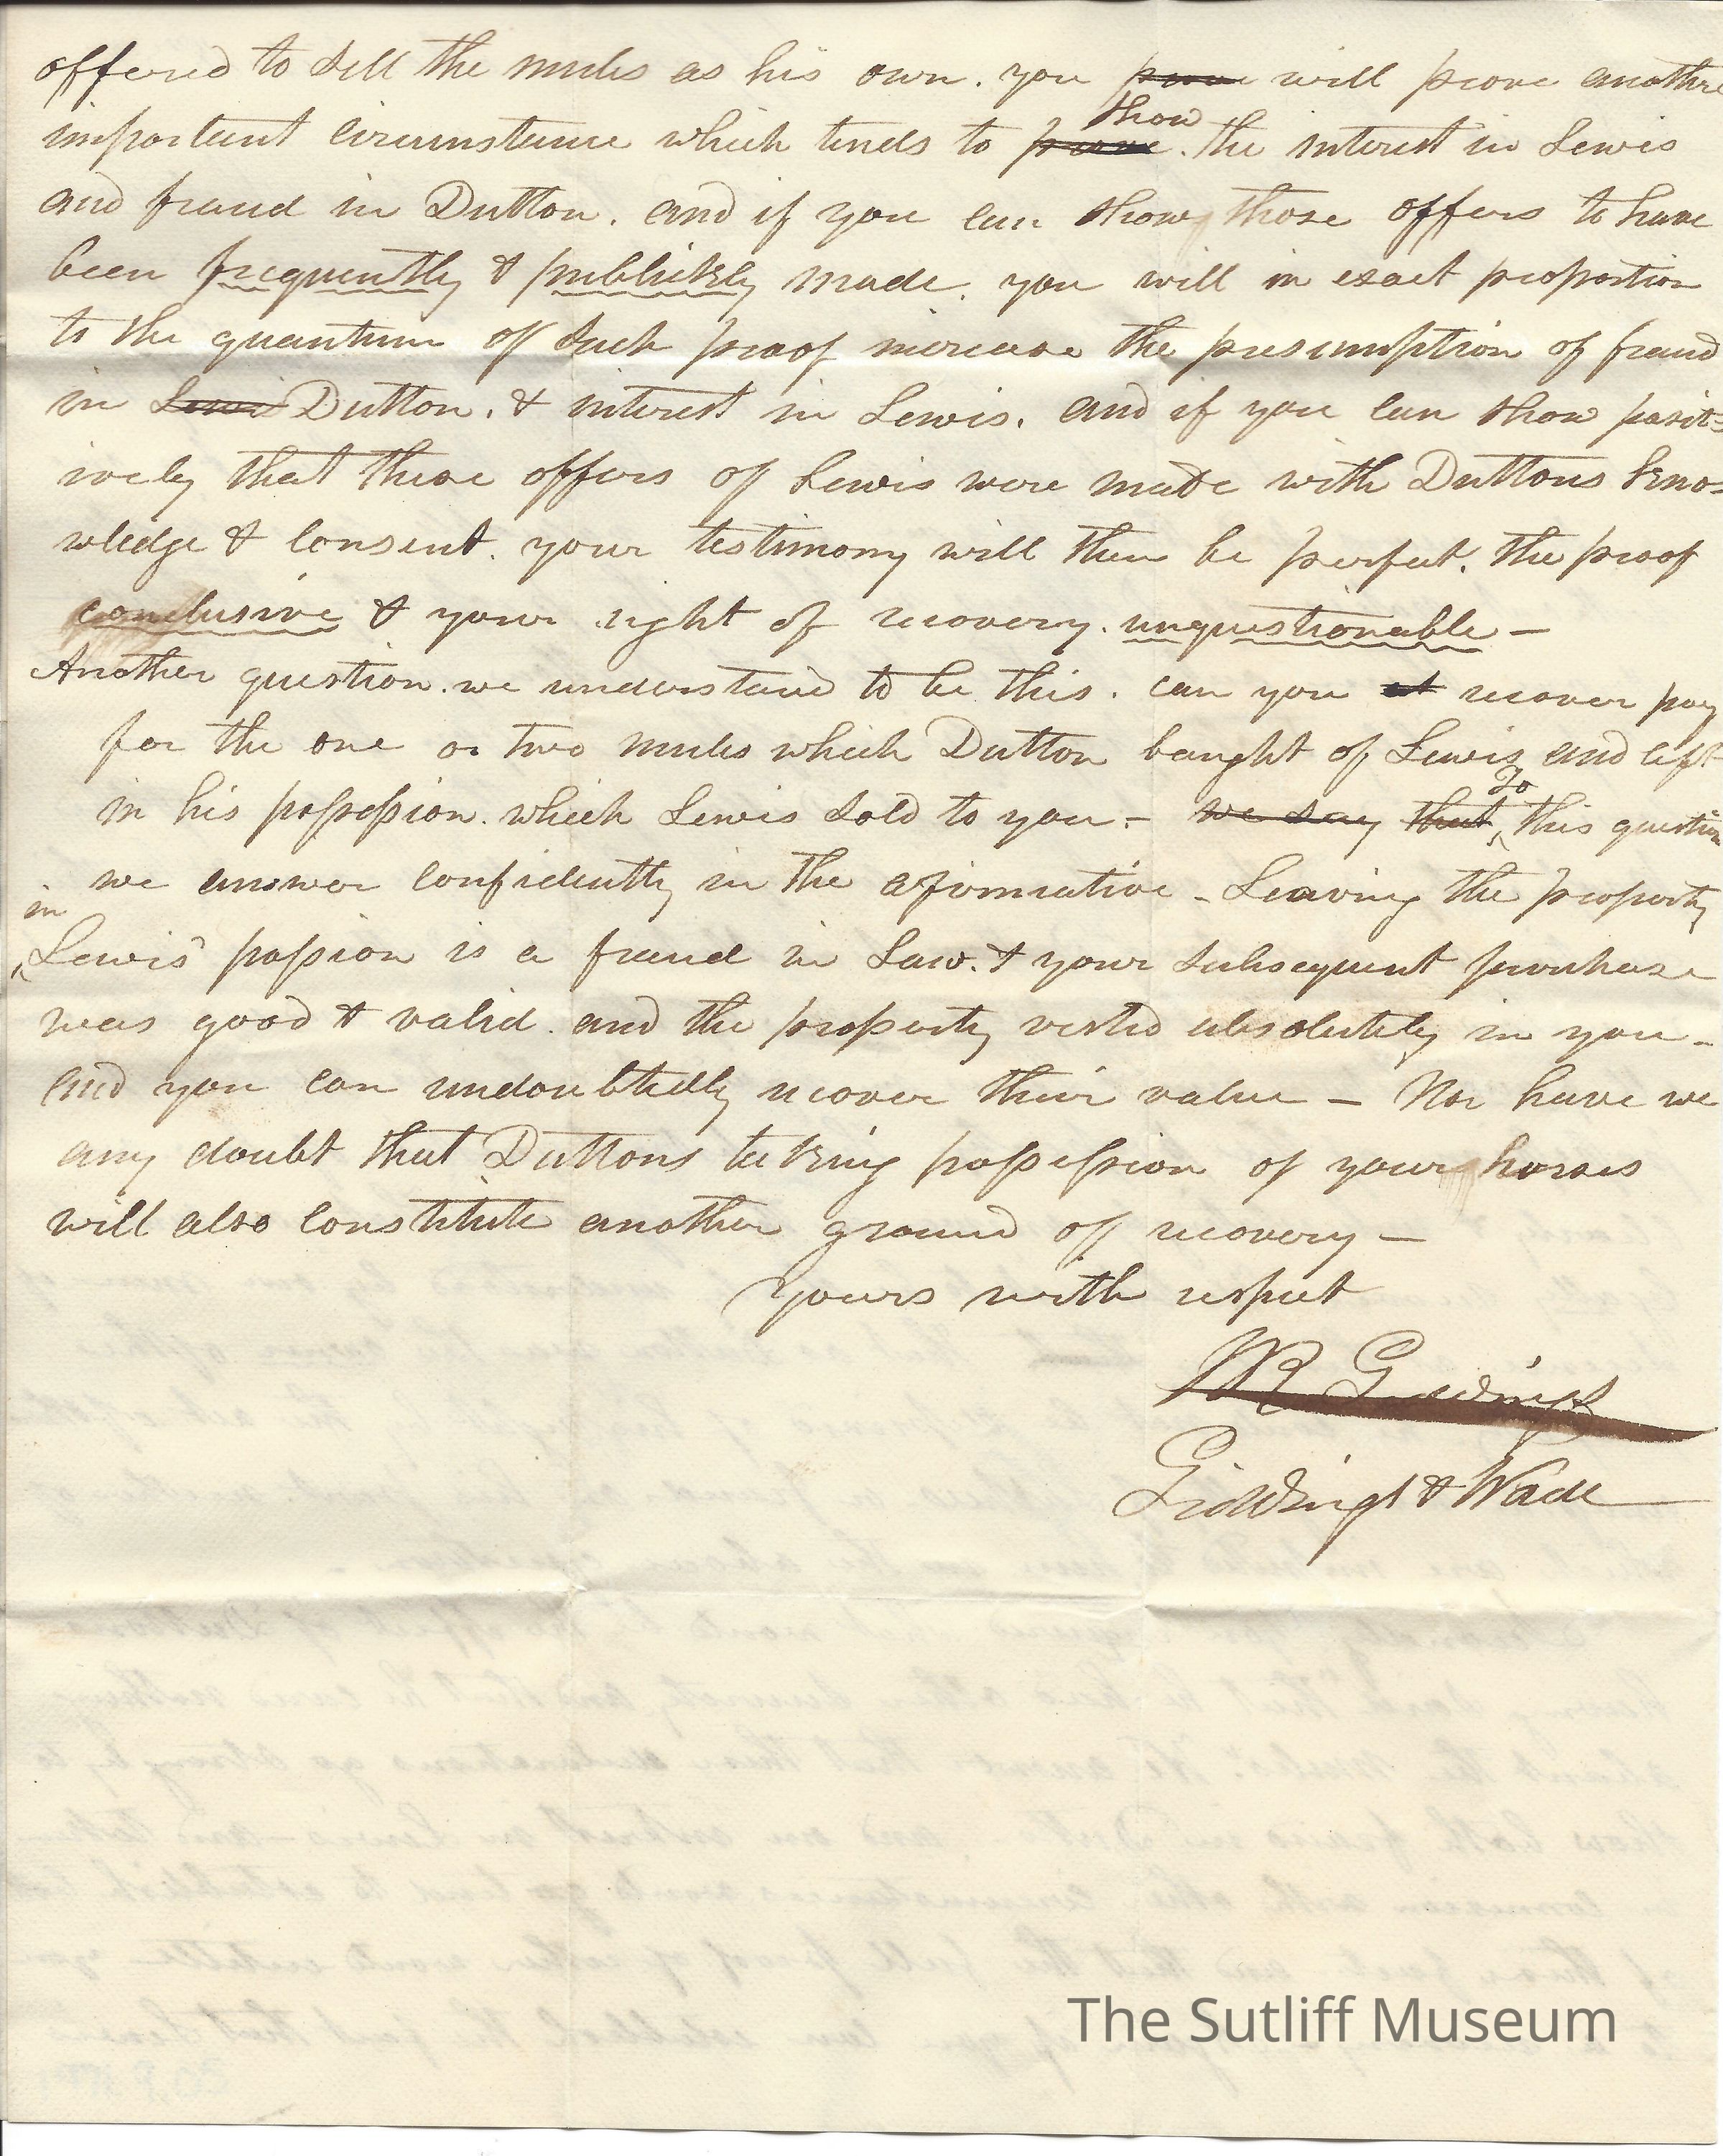 offered to sell the mules as his own. you prove will prove another
show
important circumstance which tends to prove. the interest in Lewis
and fraud in Dutton. and if you can show those offers to have
been frequently & publickly made. you will in exact proportion
to the quantum of such proof increase the presumption of fraud
in Lewis Dutton. & interest in Lewis. and if you can show posit=
ively that these offers of Lewis were made with Duttons kno=
wledge & consent. your testimony will then be perfect. the proof
conclusive & your right of recovery. unquestionable –
Another question. we understand to be this. can you at recover pay
for the one or two mules which Dutton bought of Lewis and left
in his possession. which Lewis sold to you – we say that To this question
we answer confidently in the afirmative – Leaving the property
in
Lewis' possion is a fraud in Law. & your subsequent purchase
was good & valid. and the property vested absolutely in you –
and you can undoubtedly recover their value – Nor have we
any doubt that Duttons taking possession of your horses
will also constitute another ground of recovery –
Yours with respect
JR Giddings
Giddings & Wade
The Sutliff Museum